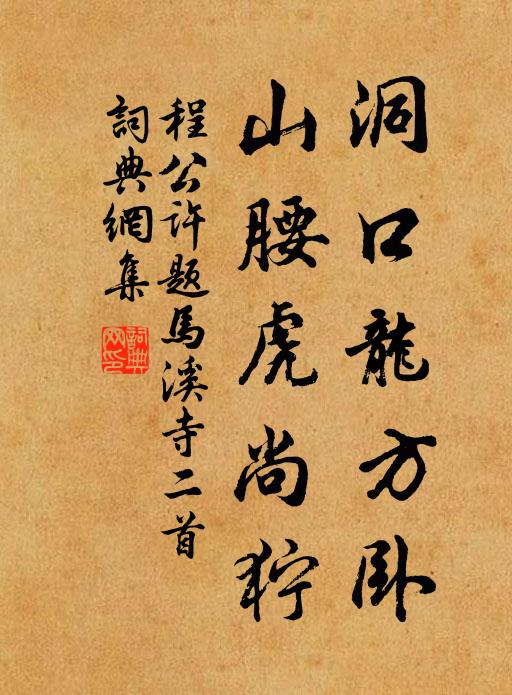 洞口龍方卧
山腰虎尚狞
程公许题馬溪寺二首
詞典網集
詞典网印